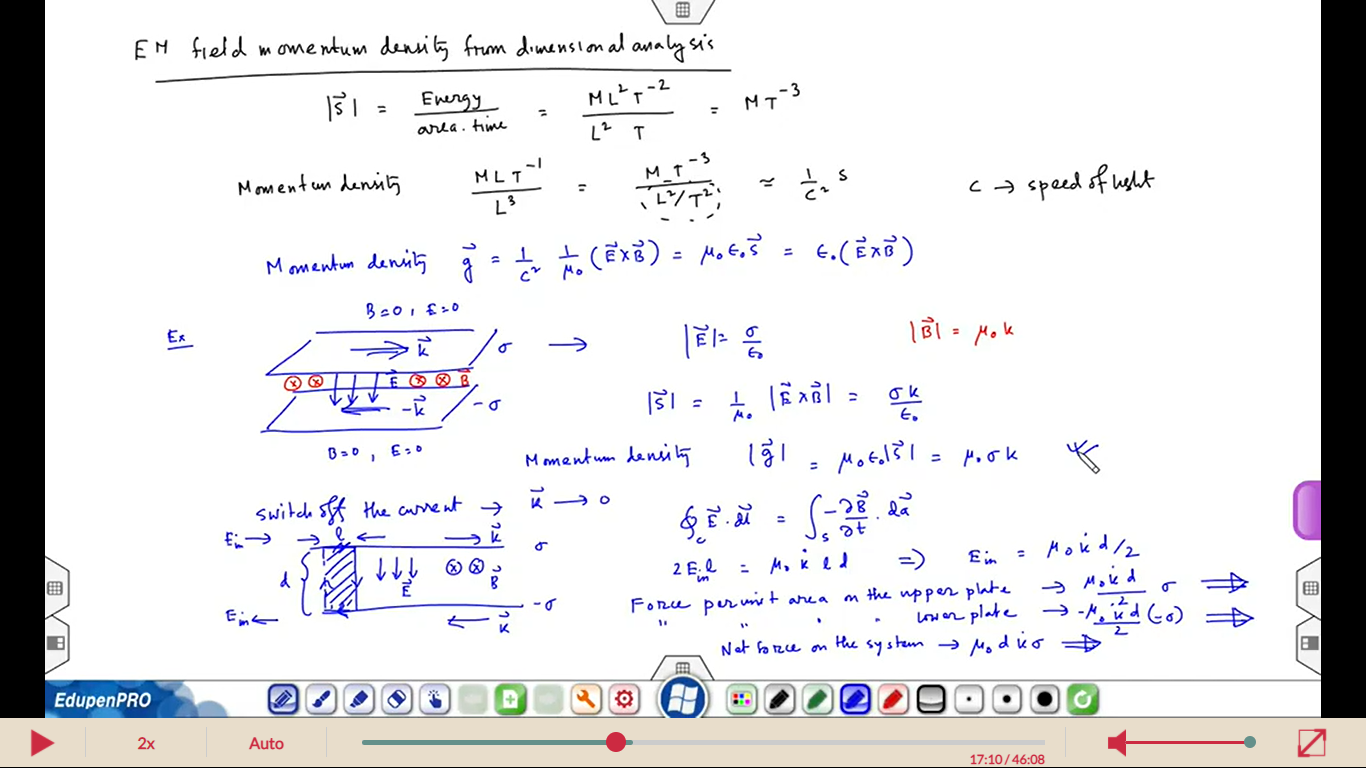 EM field momentum density from dimensional analysis
|S⃗| = Energy / area. time = M L² T⁻² / L² T = M T⁻³
Momentum density M L T⁻¹ / L³ = M T⁻³ / L²/T² ≈ 1/c² S c → speed of light
Momentum density g⃗ = 1/c² 1/μ₀ (E⃗ x B⃗) = μ₀ ε₀ S⃗ = ε₀ (E⃗ x B⃗)
B=0, E=0
Ex k⃗ σ → |E⃗| = σ/ε₀ |B⃗| = μ₀ k
E⃗ B⃗
-k⃗ -σ |S⃗| = 1/μ₀ |E⃗ x B⃗| = σk/ε₀
B=0, E=0
Momentum density |g⃗| = μ₀ ε₀ |S⃗| = μ₀ σ k
switch off the current → k⃗ → 0 ∮c E⃗ . dl⃗ = ∫s -∂B⃗/∂t . da⃗
Ein → → l ← → k⃗ σ
d E⃗ B⃗ 2 Ein l = μ₀ k̇ l d => Ein = μ₀ k̇ d/2
Ein ← ← k⃗ -σ
Force per unit area on the upper plate → μ₀ k̇ d / 2 σ ⇒
" " " " lower plate → -μ₀ k̇ d / 2 (-σ) ⇒
Net force on the system → μ₀ d k̇ σ ⇒
EdupenPRO
2x Auto 17:10 / 46:08